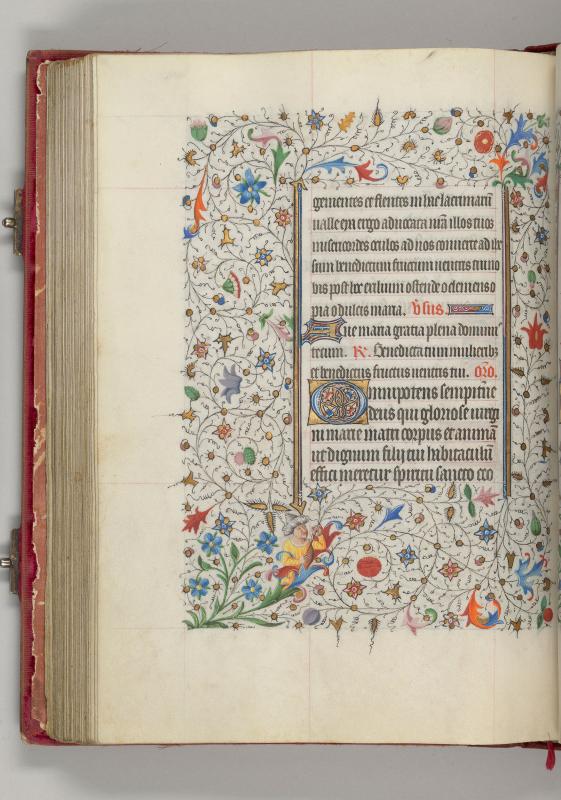 gementes et flentes in hac lacrimarū
ualle eya ergo aduocata nr̄a illos tuos
misericordes oculos ad nos conuerte ad ihe
sum benedictum fructum uentris tui no
bis post hoc exilium ostende o clemens o
pia o dulcis maria. v̄sus.
Aue maria gratia plena dominꝰ
tecum. R. Benedicta tu in mulieribꝫ
et benedictus fructus uentris tui. orō.
Omnipotens sempit̄ne
deus qui gloriose uirgi
nis marie matris corpus et animā
ut dignum filij tui habitaculū
effici meretur spiritu sancto coo